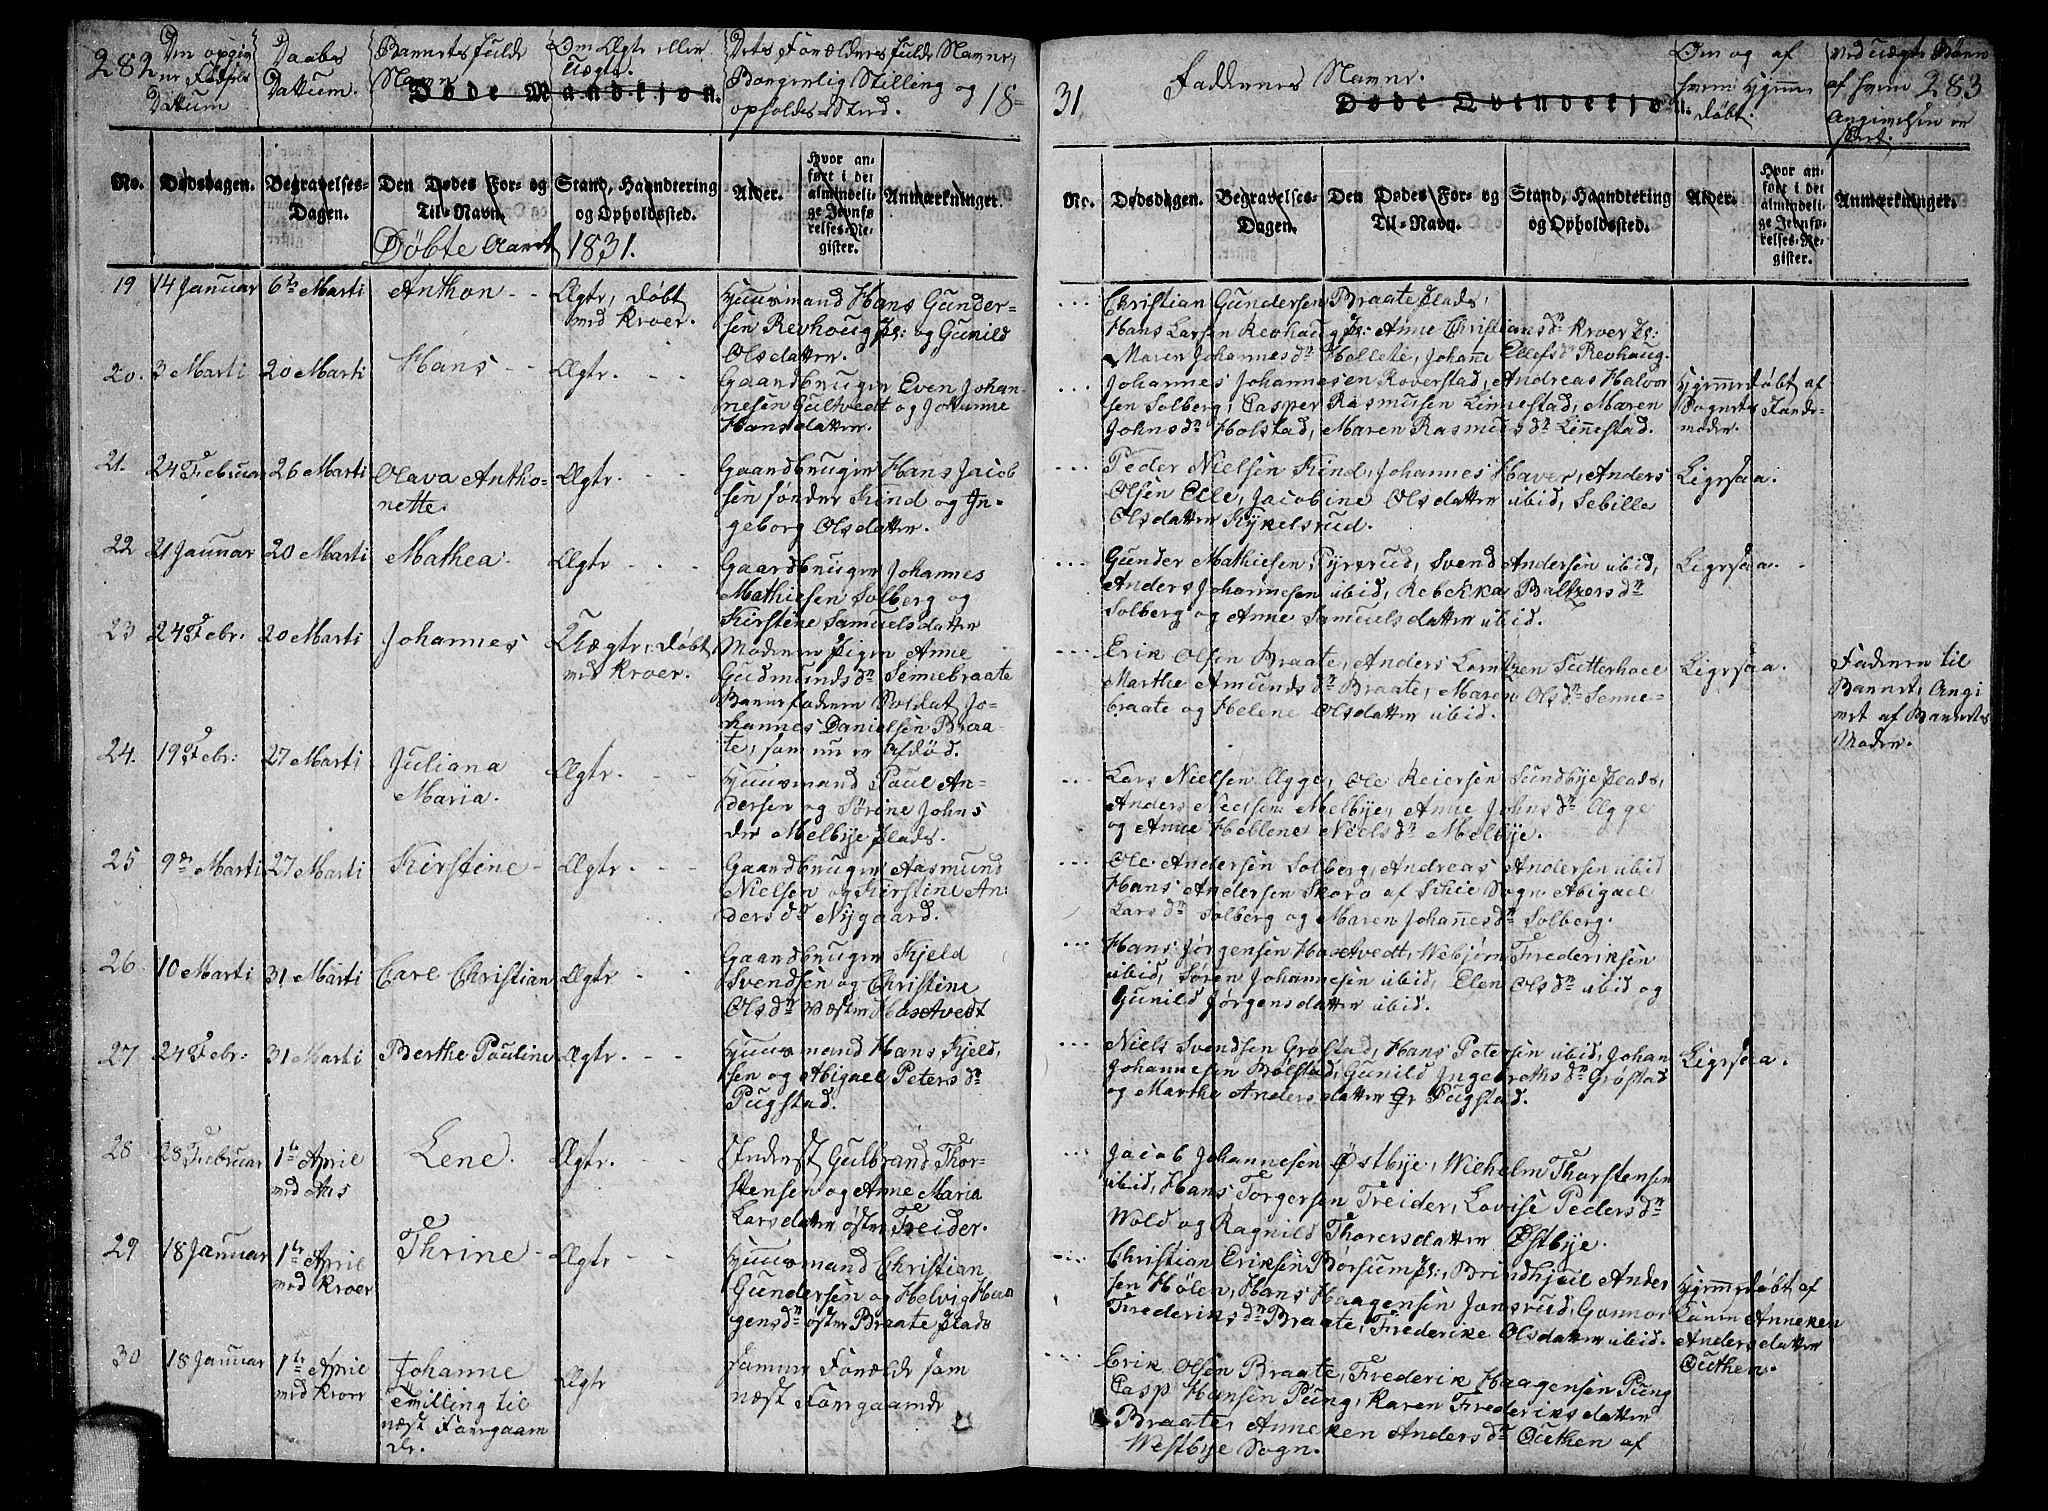 282
Den opgiv
ne Fødsels
Dattum
Daabs
Dattum.
Barnets fulde
Navn
Om Ægte eller
Uægte.
Dets Forældres fulde Navne,
Borgerlig Stilling og
opholds-Sted.
18-
Døde Mandkjøn.
No. Dødsdagen. Begravelses-Dagen. Den Dødes For- og Til-Navn. Stand, Haandtering og Opholdssted. Alder. Hvor anført i det almindelige Jevnførelses-Register. Anmærkninger.
Døbte Aaret 1831.
19 14 Januar 6te Marti Anthon - - Ægte, døbt
med Kroer.
Huusmand Hans Gunder-
sen Revhoug Pl: og Gunild
Olsdatter.
20. 3 Marti 20 Marti Hans - - Ægte. - -
Gaardbruger Even Johan-
nesen Gultvedt og Johanne
Hansdatter.
21. 24 Februar 26 Marti Olava Antho-
nette. Ægte. - -
Gaardbruger Hans Jacob
sen sønder Kind og In-
geborg Olsdatter.
22 21 Januar 20 Marti Mathea. Ægte - - -
Gaardbruger Johannes
Mathiesen Solberg og
Kirstine Samuelsdatter
23 24 Febr. 20 Marti Johannes Uægte, døbt
med Kroer.
Moderen Pigen Anne
Gudmundsdr Sennebraate
Barnefaderen Soldat Jo-
hannes Danielsen Braa-
te, som nu er Afdød.
24. 19 Febr: 27 Marti Juliana
Maria. Ægte. - -
Huusmand Paul An-
dersen og Sørine Johns
dr Melbye Plads.
25 9de Marti 27 Marti Kirstine - Ægte. - -
Gaardbruger Aasmund
Nielsen og Kirstine An-
dersdr Nygaard.
26 10 Marti 31 Marti Carl Christian Ægte - -
Gaardbruger Kjeld
Svendsen og Christine
Olsdr Wæster Haxtvedt
27 24 Febr: 31 Marti Berthe Pouline Ægte. - -
Huusmand Hans Kjeld,
sen og Abigael Petersdr
Pugstad.
28 28 Februar 1te April
med Aas Lene. Ægte. - -
Inderst Gulbrand Thor-
stensen og Anne Maria
Larsdatter øster Freider.
29 18 Januar 1te April
med Kroer Thrine - Ægte
Huusmand Christian
Gundersen og Helvig Haa
gensdr øster Braate Plads
30 18 Januar 1te April
med Kroer Johanne
Tvilling til
næst Foregaaen
de. Ægte
Samme Forælde som
næst Foregaaende
31
Faddernes Navne.
Om og af
hvem hjemme
døbt.
Ved uægte Børn
af hvem
Angivelsen er
skeet.
283
Døde Qvindekjøn.
No. Dødsdagen. Begravelses-Dagen. Den Dødes For- og Til-Navn. Stand, Haandtering og Opholdssted. Alder. Hvor anført i det almindelige Jevnførelses-Register. Anmærkninger.
Christian Gundersen Braate Plads,
Hans Larsen Revhaug Pl: Anne Christiansdr Kroer Pl:
Maren Johannesdr Holleti, Johanne Ellefsdr Revhaug.
Johannes Johannesen Roverstad, Andreas Halvor
sen Solberg, Casper Rasmusen Linnestad, Maren
Johnsdr Holstad, Maren Rasmusdr Linnestad.
Hjemmedøbt af
Sognets Jorde-
moder.
Peder Nielsen Kind, Johannes Haver, Anders
Olsen Elle, Jacobine Olsdatter ibid, Sebille
Olsdatter Kykelsrud.
Ligesaa.
Gunder Mathiesen Pyrerud, Svend Andersen ibid,
Anders Johannesen ibid, Rebekka Baltzersdr
Solberg og Anne Samuelsdatter ibid.
Ligesaa.
Erik Olsen Braate, Anders Lorntzen Sutterhoel
Marthe Amundsdr Braate, Maren Olsdr Senne-
braate og Helene Olsdatter ibid.
Ligesaa.
Faderen til
Barnet, Angi
vet af Barnets
Moder.
Lars Nielsen Agge, Ole Reiersen Sundbye Plads,
Anders Nielsen Melbye, Anne Johnsdr Agge
og Anne Hellene Nielsdr Melbye.
Ole Andersen Solberg, Andreas Andersen ibid
Hans Andersen Skoro af Schie Sogn Abigael
Larsdr Solberg og Maren Johannesdr Solberg.
Hans Jørgensen Haxtvedt, Webjørn Frederiksen
ibid, Søren Johannesen ibid, Elen Olsdr ibid og
Gunild Jørgensdatter ibid.
Niels Svendsen Grøstad, Hans Petersen ibid, Johan
Johannesen Bølstad, Gunild Ingebrethsdr Grøstad
og Marthe Andersdatter Pugstad.
Ligesaa.
Jacob Johannesen Østbye, Wilhelm Thorstensen
ibid, Hans Torgersen Freider, Lovise Pedersdr
Wold og Ragnild Thoresdatter Østbye.
Christian Eriksen Børsum Pl:, Brindhjul Ander
sen Hølen, Hans Haagensen Jonsrud, Gonnor
Frederiksdr Braate, Frederike Olsdatter ibid.
Hjemmedøbt af
Anneken
Andersdatter
Outhen.
Erik Olsen Braate, Frederik Haagensen Pung
Casp Hansen Pung, Karen Frederiksdatter
Braate, Anneken Andersdr Outhen af
Westbye Sogn.